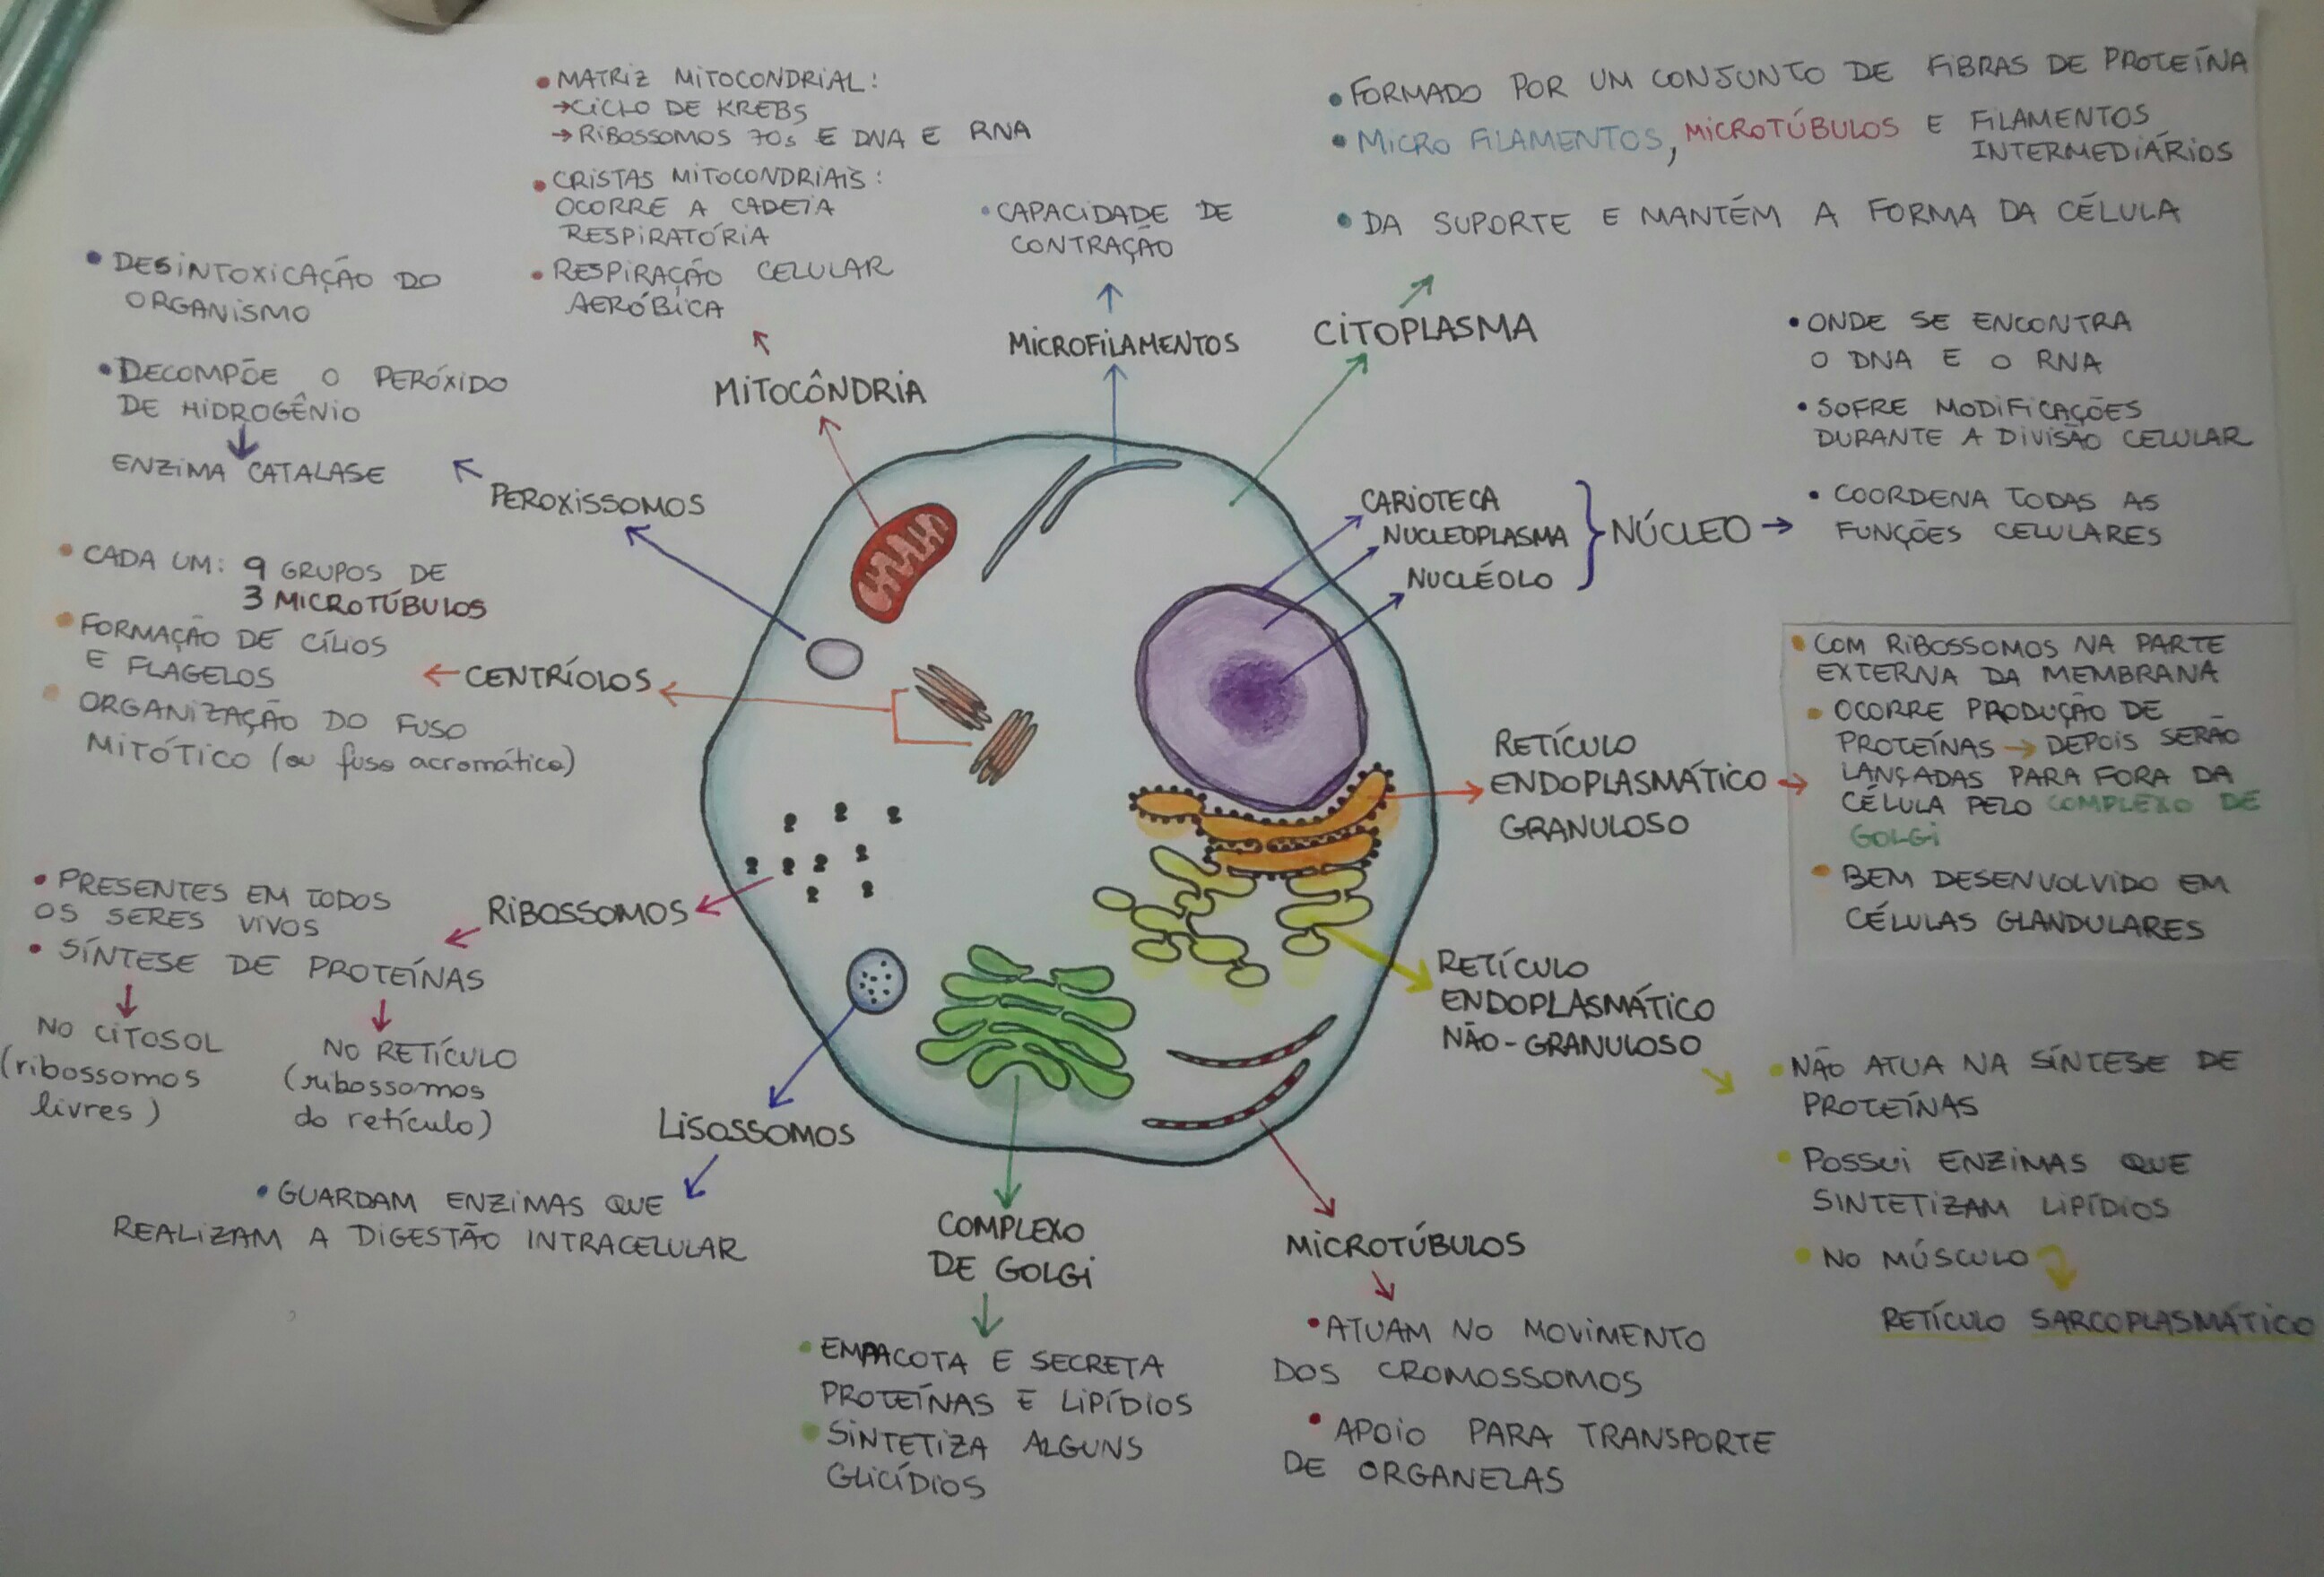 • MATRIZ MITOCONDRIAL:
→ CICLO DE KREBS
→ RIBOSSOMOS 70s E DNA E RNA
• CRISTAS MITOCONDRIAIS:
OCORRE A CADEIA
RESPIRATÓRIA
• RESPIRAÇÃO CELULAR
AERÓBICA
MITOCÔNDRIA
• CAPACIDADE DE
CONTRAÇÃO
MICROFILAMENTOS
• FORMADO POR UM CONJUNTO DE FIBRAS DE PROTEÍNA
• MICRO FILAMENTOS, MICROTÚBULOS E FILAMENTOS
INTERMEDIÁRIOS
• DA SUPORTE E MANTÉM A FORMA DA CÉLULA
CITOPLASMA
• DESINTOXICAÇÃO DO
ORGANISMO
• DECOMPÕE O PERÓXIDO
DE HIDROGÊNIO
ENZIMA CATALASE
PEROXISSOMOS
• ONDE SE ENCONTRA
O DNA E O RNA
• SOFRE MODIFICAÇÕES
DURANTE A DIVISÃO CELULAR
• COORDENA TODAS AS
FUNÇÕES CELULARES
CARIOTECA
NUCLEOPLASMA
NUCLÉOLO
NÚCLEO →
• CADA UM: 9 GRUPOS DE
3 MICROTÚBULOS
• FORMAÇÃO DE CÍLIOS
E FLAGELOS
• ORGANIZAÇÃO DO FUSO
MITÓTICO (ou fuso acromático)
← CENTRÍOLOS
RETÍCULO
ENDOPLASMÁTICO →
GRANULOSO
• COM RIBOSSOMOS NA PARTE
EXTERNA DA MEMBRANA
• OCORRE PRODUÇÃO DE
PROTEÍNAS → DEPOIS SERÃO
LANÇADAS PARA FORA DA
CÉLULA PELO COMPLEXO DE
GOLGI
• BEM DESENVOLVIDO EM
CÉLULAS GLANDULARES
• PRESENTES EM TODOS
OS SERES VIVOS
• SÍNTESE DE PROTEÍNAS
RIBOSSOMOS
NO CITOSOL
(ribossomos
livres)
NO RETÍCULO
(ribossomos
do retículo)
RETÍCULO
ENDOPLASMÁTICO
NÃO-GRANULOSO
• NÃO ATUA NA SÍNTESE DE
PROTEÍNAS
• POSSUI ENZIMAS QUE
SINTETIZAM LIPÍDIOS
• NO MÚSCULO
RETÍCULO SARCOPLASMÁTICO
LISOSSOMOS
• GUARDAM ENZIMAS QUE
REALIZAM A DIGESTÃO INTRACELULAR
COMPLEXO
DE GOLGI
• EMPACOTA E SECRETA
PROTEÍNAS E LIPÍDIOS
• SINTETIZA ALGUNS
GLICÍDIOS
MICROTÚBULOS
• ATUAM NO MOVIMENTO
DOS CROMOSSOMOS
• APOIO PARA TRANSPORTE
DE ORGANELAS